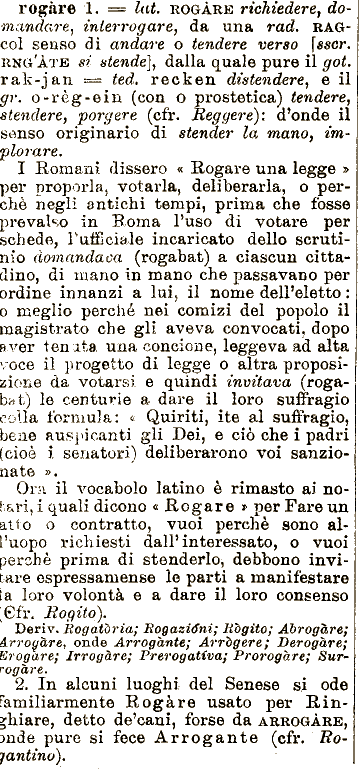 rogàre 1. = lat. ROGÀRE richiedere, do-
mandare, interrogare, da una rad. RAG-
col senso di andare o tendere verso [sscr.
RNG'ÀTE si stende], dalla quale pure il got.
rak-jan = ted. recken distendere, e il
gr. o-règ-ein (con o prostetica) tendere,
stendere, porgere (cfr. Reggere): d'onde il
senso originario di stender la mano, im-
plorare.
I Romani dissero « Rogare una legge »
per proporla, votarla, deliberarla, o per-
chè negli antichi tempi, prima che fosse
prevalso in Roma l'uso di votare per
schede, l'ufficiale incaricato dello scruti-
nio domandava (rogabat) a ciascun citta-
dino, di mano in mano che passavano per
ordine innanzi a lui, il nome dell'eletto:
o meglio perchè nei comizi del popolo il
magistrato che gli aveva convocati, dopo
aver tenuta una concione, leggeva ad alta
voce il progetto di legge o altra proposi-
zione da votarsi e quindi invitava (roga-
bat) le centurie a dare il loro suffragio
colla formula: « Quiriti, ite al suffragio,
bene auspicanti gli Dei, e ciò che i padri
(cioè i senatori) deliberarono voi sanzio-
nate ».
Ora il vocabolo latino è rimasto ai no-
tari, i quali dicono « Rogare » per Fare un
atto o contratto, vuoi perchè sono al-
l'uopo richiesti dall'interessato, o vuoi
perchè prima di stenderlo, debbono invi-
tare espressamente le parti a manifestare
la loro volontà e a dare il loro consenso
(Cfr. Rogito).
Deriv. Rogatòria; Rogazióni; Rògito; Abrogàre;
Arrogàre, onde Arrogànte; Arrògere; Derogàre;
Erogàre; Irrogàre; Prerogativa; Prorogàre; Sur-
rogàre.
2. In alcuni luoghi del Senese si ode
familiarmente Rogàre usato per Rin-
ghiare, detto de'cani, forse da ARROGÀRE,
onde pure si fece Arrogante (cfr. Ro-
gantino).